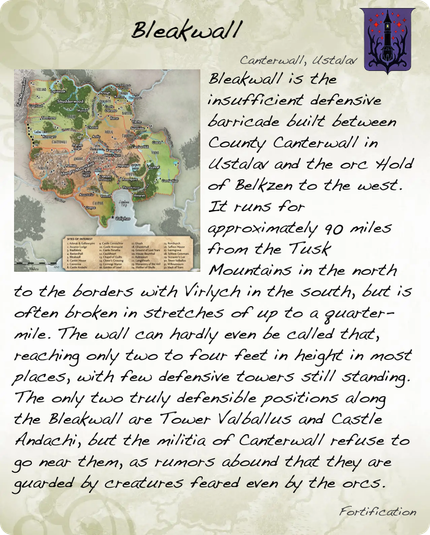 Bleakwall
Canterwall, Ustalav
Bleakwall is the
insufficient defensive
barricade built between
County Canterwall in
Ustalav and the orc Hold
of Belkzen to the west.
It runs for
approximately 90 miles
from the Tusk
Mountains in the north
to the borders with Virlych in the south, but is
often broken in stretches of up to a quarter-
mile. The wall can hardly even be called that,
reaching only two to four feet in height in most
places, with few defensive towers still standing.
The only two truly defensible positions along
the Bleakwall are Tower Valballus and Castle
Andachi, but the militia of Canterwall refuse to
go near them, as rumors abound that they are
guarded by creatures feared even by the orcs.
Fortification